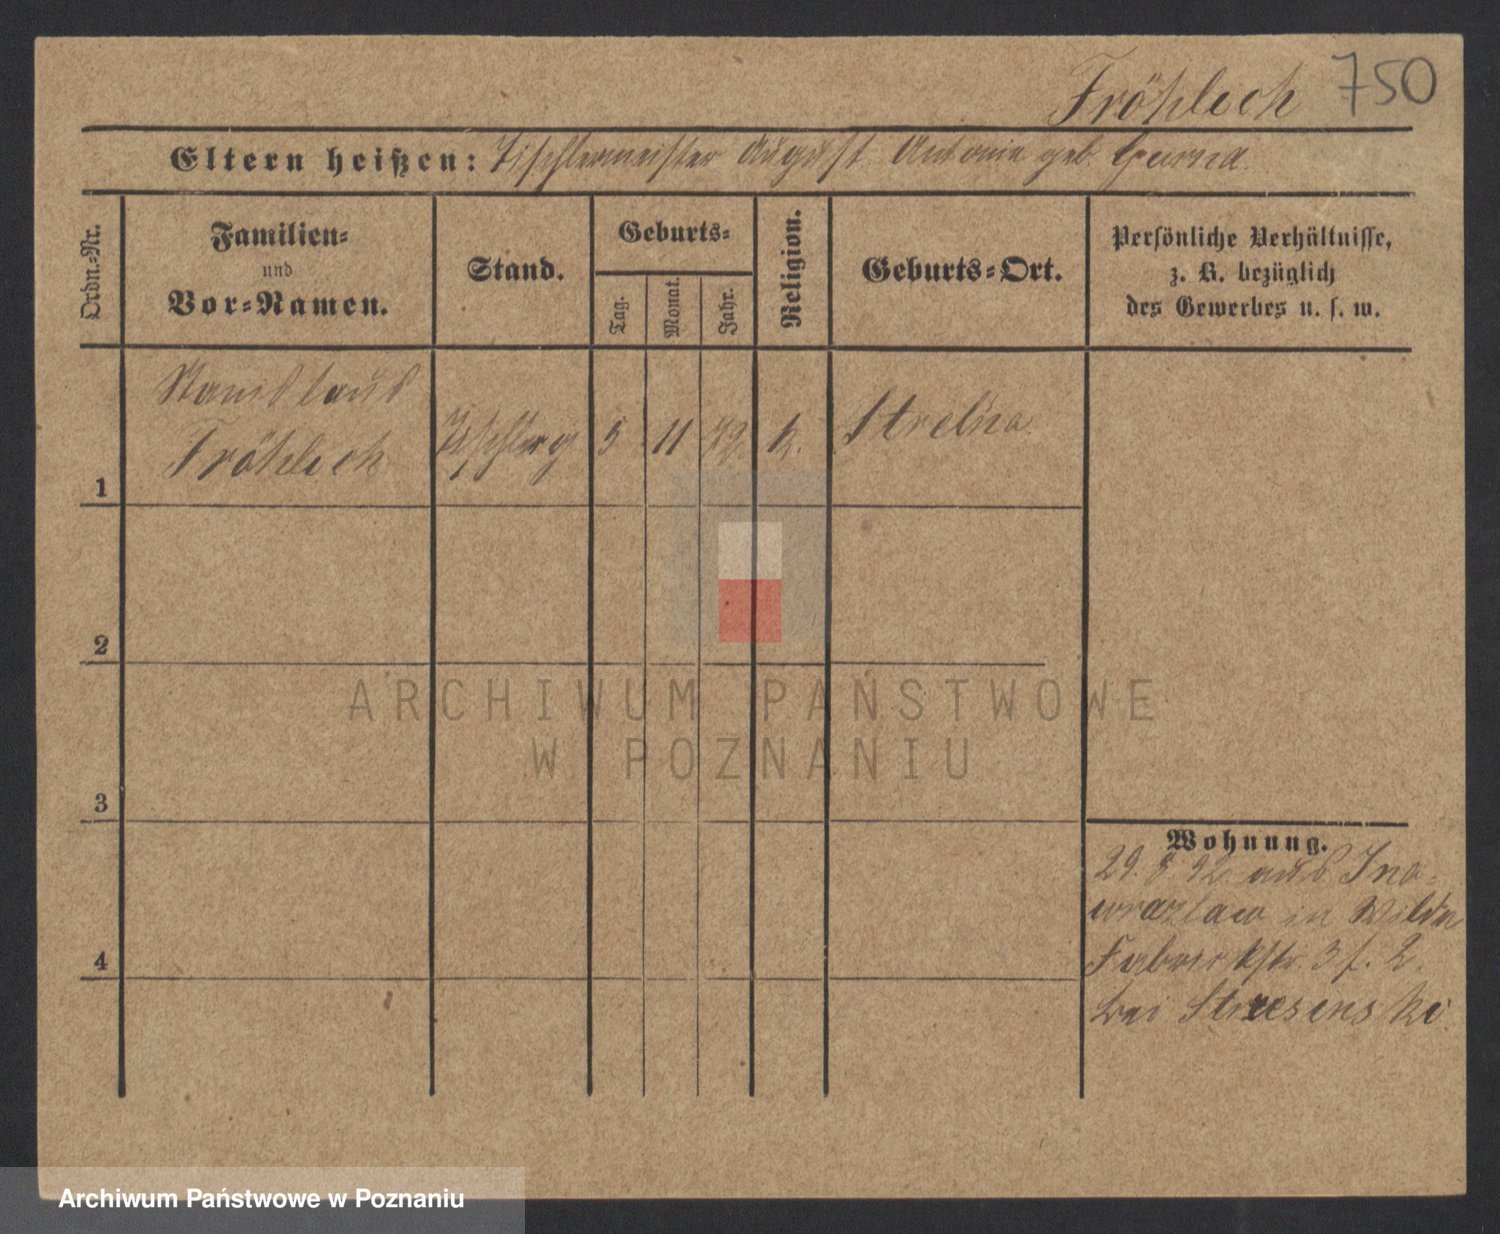 Fröhlich 750
Eltern heißen: Tischlermeister August Antonie geb.
Ordn.-Nr.
Familien-
und
Vor-Namen.
Stand.
Geburts-
Tag.
Monat.
Jahr.
Religion.
Geburts-Ort.
Persönliche Verhältnisse,
z. B. bezüglich
des Gewerbes u. s. w.
Stanislaus
Fröhlich
1
5 11 72. k. Strelno
2
ARCHIWUM PAŃSTWOWE
W POZNANIU
3
Wohnung.
29. 8 92. aus Ino-
wrazlaw in Wilda
Fabrickstr. 3 f. 2.
bei
4
Archiwum Państwowe w Poznaniu